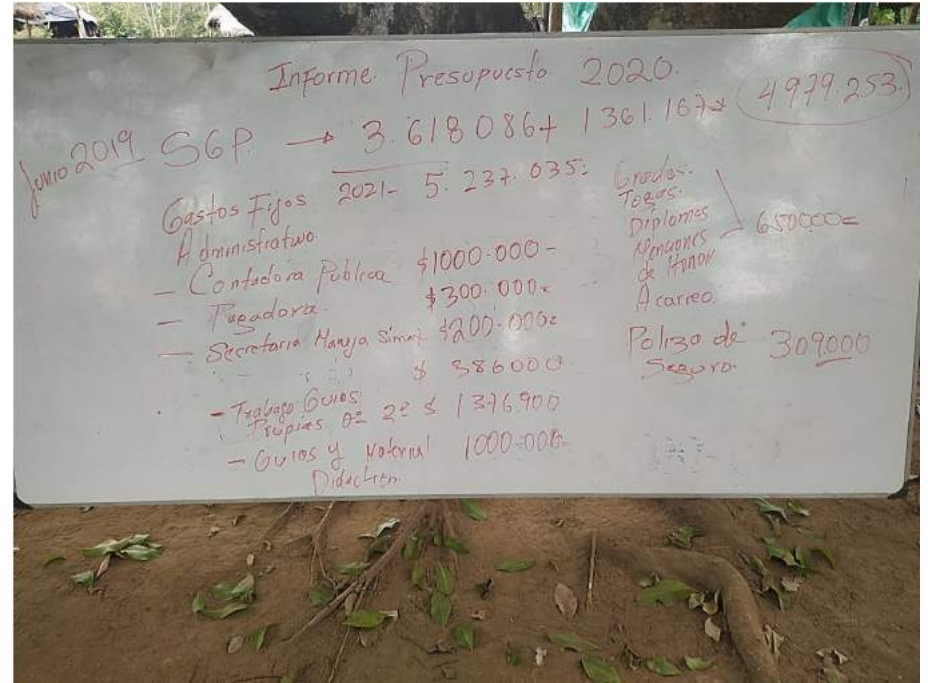 Informe Presupuesto 2020.
Junio 2019 SGP → 3.618086+ 1361.167= 4979.253.
2021- 5.237.035=
Gastos Fijos
Administrativo.
- Contadora Publica $1000.000-
- Pagadora. $300.000=
- Secretaria Maneja Simat $200.000=
" " $ 386000
- Trabajo Guias
Propias 0º 2º $ 1376.900
- Guias y Material 1000.000=
Didactico.
Grados.
Togas.
Diplomas
Menciones
de Honor
Acarreo.
650000=
Poliza de
Seguro. 309000